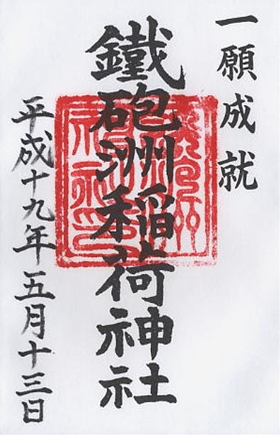 一願成就
鐵砲洲稲荷神社
平成十九年五月十三日